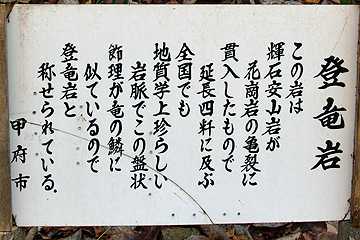 登竜岩
この岩は
輝石安山岩が
花崗岩の亀裂に
貫入したもので
延長四粁に及ぶ
全国でも
地質学上珍らしい
岩脈でこの盤状
節理が竜の鱗に
似ているので
登竜岩と
称せられている.
甲府市